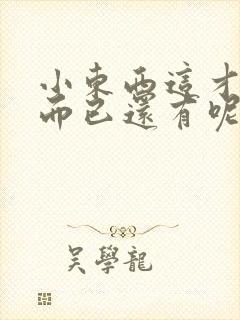 小東西這才
而已還有呢
吳學龍